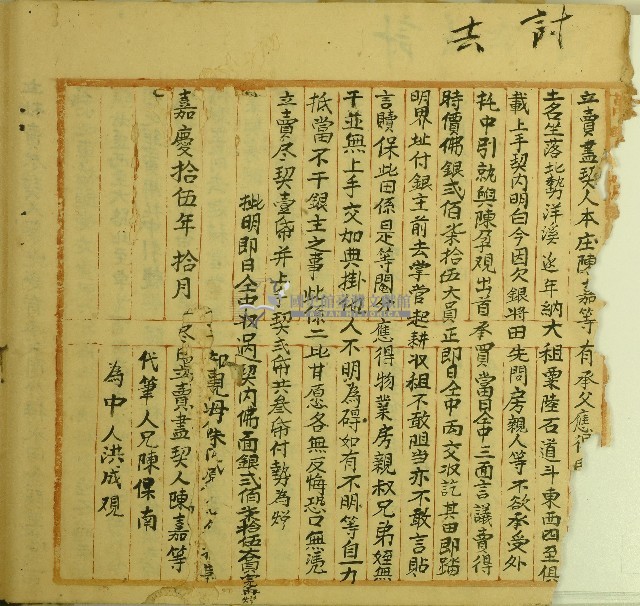 討
六
立賣盡契人本庄陳嘉等有承父應得
土名坐落北勢洋溪 逐年納大租粟陸石道斗東西四至俱
載上手契內明白今因欠銀將田先問房親人等不欲承受外
托中引就與陳孕观出首承買當日仝中三面言議賣得
時價佛銀弍佰柒拾伍大員正即日仝中両交收訖其田即踏
明界址付銀主前去掌管起耕收租不敢阻当亦不敢言貼
言贖保此田係是等鬮分應得物業房親叔兄弟姪無
干並無上手交加典掛他人不明為碍如有不明等自一力
抵當不干銀主之事此係二比甘愿各無反悔恐口無憑
立賣尽契壹帋并上手契弍帋共叁帋付執為炤
批明即日仝中收過契內佛面銀弍佰柒拾伍大員完再炤
嘉慶拾伍年 拾月
知見母朱氏
尽賣盡契人陳嘉等
代筆人兄陳保南
為中人洪成观
國立臺灣文獻館
TAIWAN HISTORICA